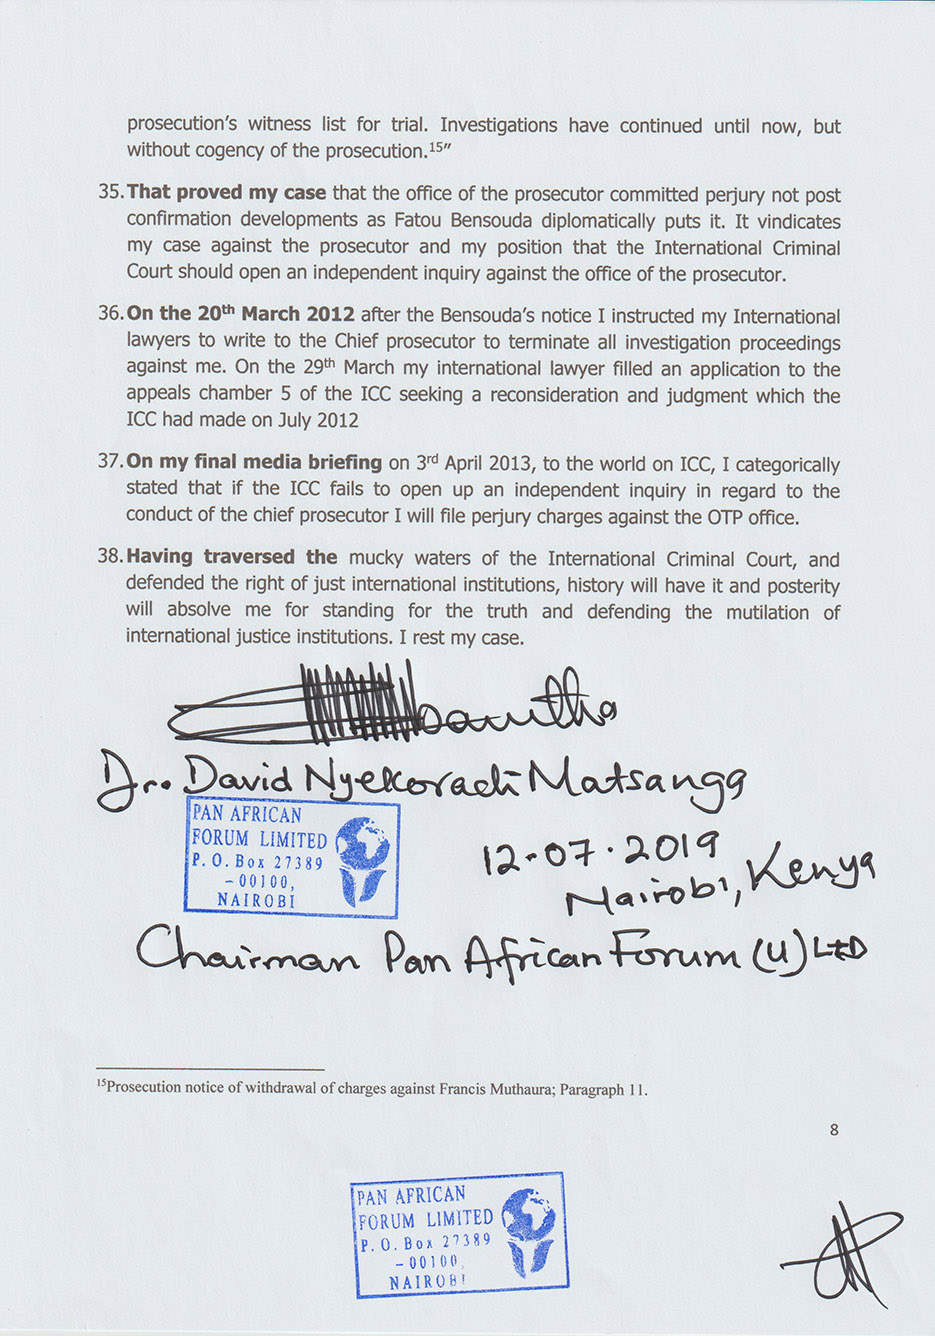 prosecution's witness list for trial. Investigations have continued until now, but
without cogency of the prosecution.¹⁵"
35. That proved my case that the office of the prosecutor committed perjury not post
confirmation developments as Fatou Bensouda diplomatically puts it. It vindicates
my case against the prosecutor and my position that the International Criminal
Court should open an independent inquiry against the office of the prosecutor.
36. On the 20th March 2012 after the Bensouda's notice I instructed my International
lawyers to write to the Chief prosecutor to terminate all investigation proceedings
against me. On the 29th March my international lawyer filled an application to the
appeals chamber 5 of the ICC seeking a reconsideration and judgment which the
ICC had made on July 2012
37. On my final media briefing on 3rd April 2013, to the world on ICC, I categorically
stated that if the ICC fails to open up an independent inquiry in regard to the
conduct of the chief prosecutor I will file perjury charges against the OTP office.
38. Having traversed the mucky waters of the International Criminal Court, and
defended the right of just international institutions, history will have it and posterity
will absolve me for standing for the truth and defending the mutilation of
international justice institutions. I rest my case.
Dr. David Nyekorach-Matsanga
PAN AFRICAN
FORUM LIMITED
P. O. Box 27389
-00100,
NAIROBI
12-07.2019
Nairobi, Kenya
Chairman Pan African Forum (U) LTD
¹⁵Prosecution notice of withdrawal of charges against Francis Muthaura; Paragraph 11.
8
PAN AFRICAN
FORUM LIMITED
P. O. Box 27389
-00100,
NAIROBI